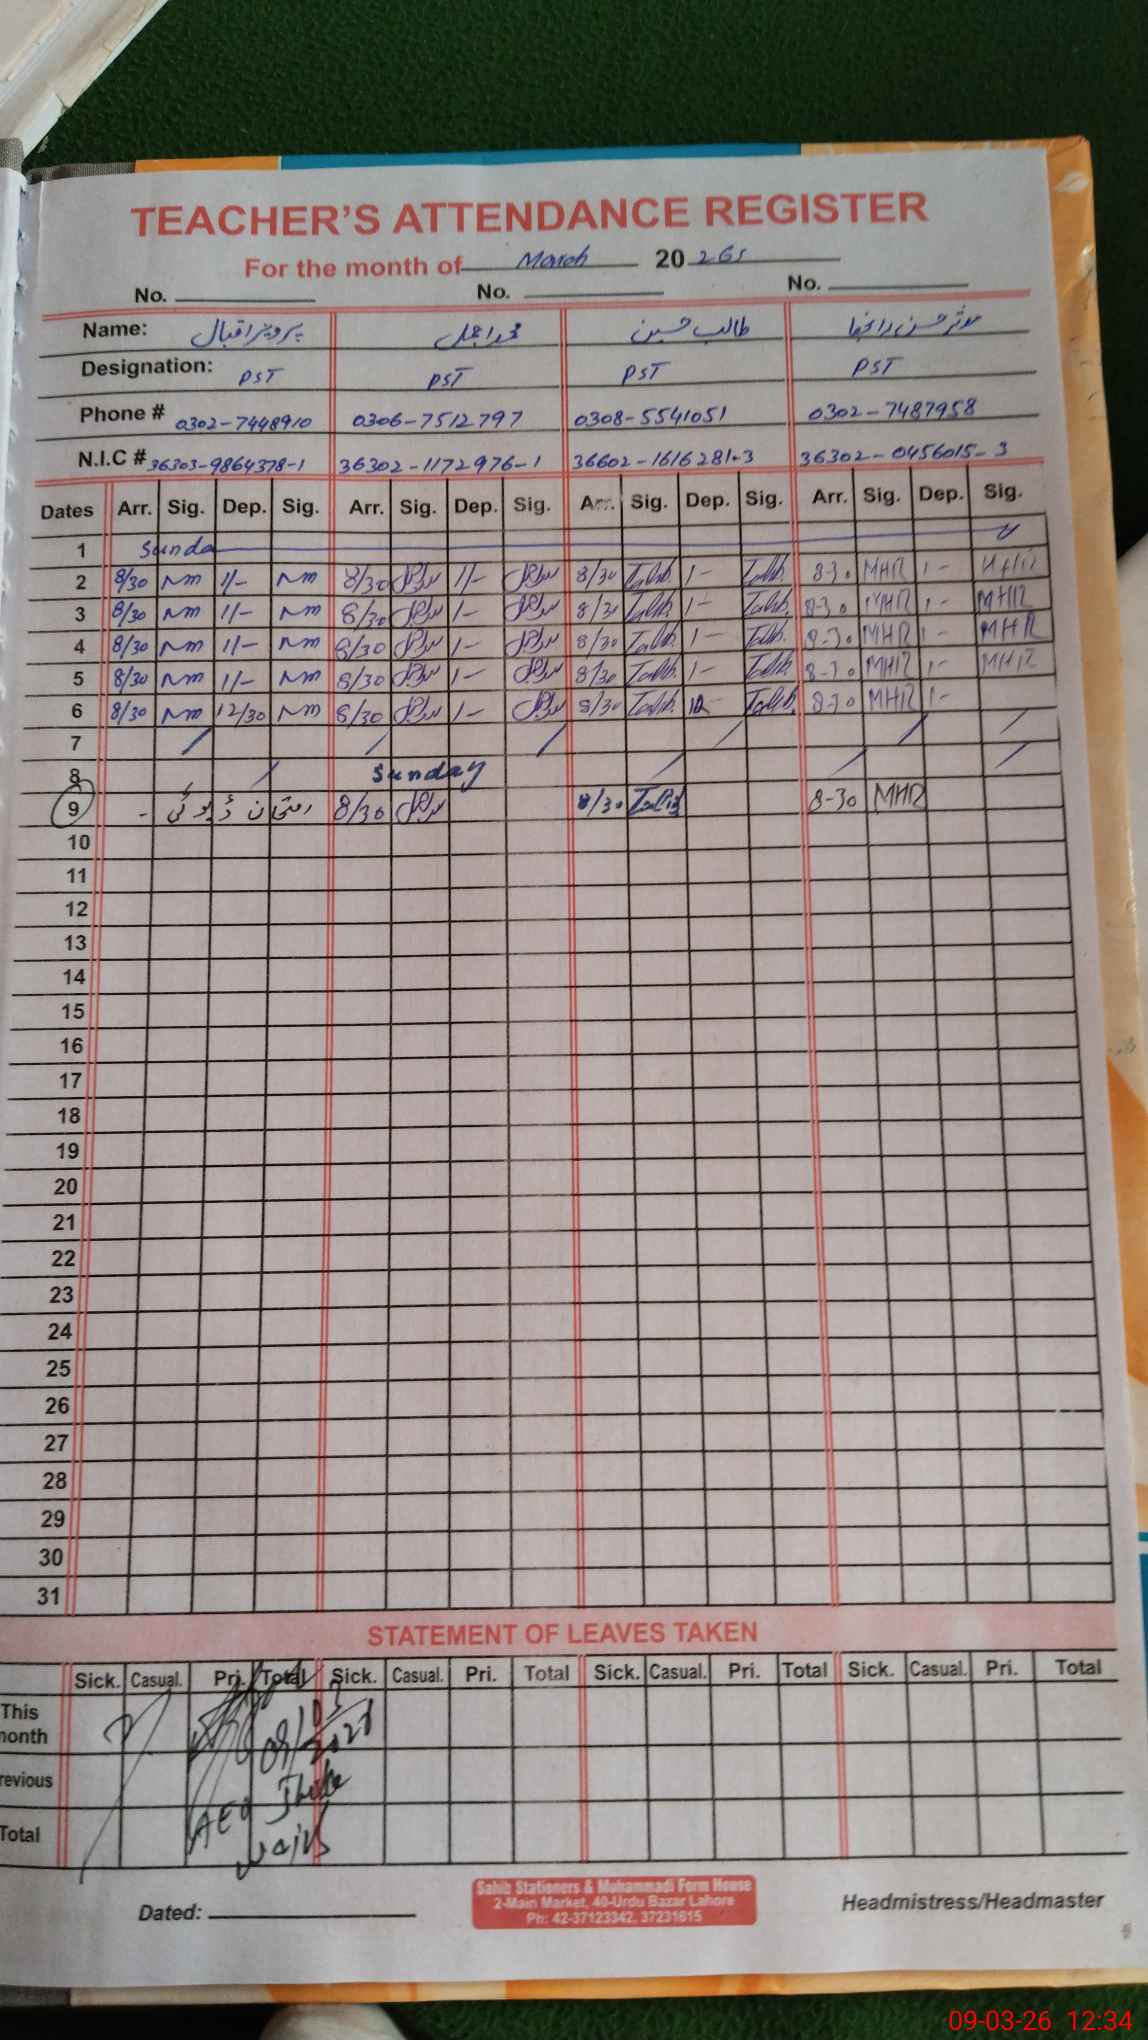 TEACHER'S ATTENDANCE REGISTER
For the month of March 20 26
No. No. No.
Name: پرویز اقبال محمد اجمل طالب حسین مدثر حسن رانجھا
Designation: PST PST PST PST
Phone # 0302-7448910 0306-7512797 0308-5541051 0302-7487958
N.I.C # 36303-9864378-1 36302-1172976-1 36602-1616281-3 36302-0456015-3
Dates Arr. Sig. Dep. Sig. Arr. Sig. Dep. Sig. Arr. Sig. Dep. Sig. Arr. Sig. Dep. Sig.
1 Sunda
2 8/30 Nm 1/- Nm 8/30 1/- 8/30 Talib 1- Talib 8-30 MHR 1- MHR
3 8/30 Nm 1/- Nm 8/30 1- 8/30 Talib 1- Talib 8-30 MHR 1- MHR
4 8/30 Nm 1/- Nm 8/30 1- 8/30 Talib 1- Talib 8-30 MHR 1- MHR
5 8/30 Nm 1/- Nm 8/30 1- 8/30 Talib 1- Talib 8-30 MHR 1- MHR
6 8/30 Nm 12/30 Nm 8/30 1- 8/30 Talib 12- Talib 8-30 MHR 1-
7
8 Sunday
9 امتحان ڈیوٹی - 8/30 8/30 Talib 8-30 MHR
10
11
12
13
14
15
16
17
18
19
20
21
22
23
24
25
26
27
28
29
30
31
STATEMENT OF LEAVES TAKEN
Sick. Casual. Pri. Total Sick. Casual. Pri. Total Sick. Casual. Pri. Total Sick. Casual. Pri. Total
This
onth
09/03
revious
AEO
Total
Dated:
Sahib Stationers & Muhammadi Form House
2-Main Market, 40-Urdu Bazar Lahore
Ph: 42-37123342, 37231615
Headmistress/Headmaster
09-03-26 12:34